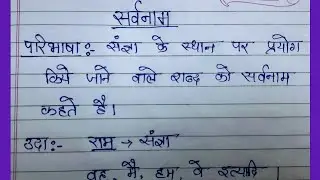 सर्वनाम
परिभाषा:- संज्ञा के स्थान पर प्रयोग
किये जाने वाले शब्द को सर्वनाम
कहते है।
उदा:- राम → संज्ञा
वह, मै, हम, वे इत्यादि।